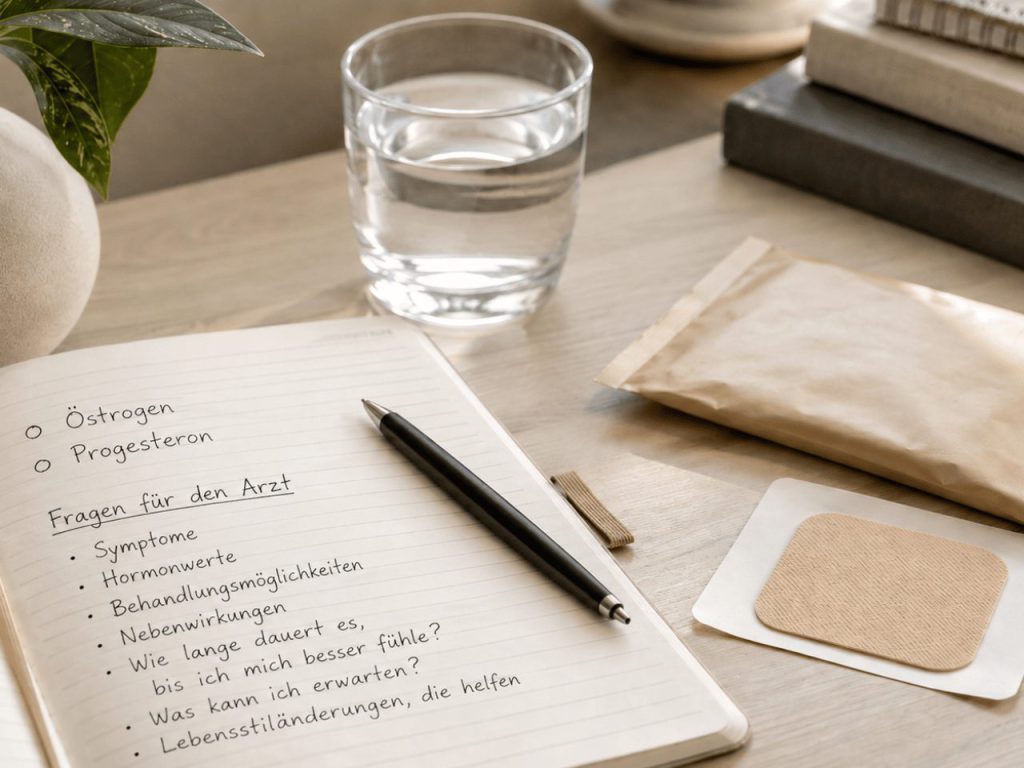 Östrogen
Progesteron
Fragen für den Arzt
Symptome
Hormonwerte
Behandlungsmöglichkeiten
Nebenwirkungen
Wie lange dauert es,
bis ich mich besser fühle?
Was kann ich erwarten?
Lebensstiländerungen, die helfen